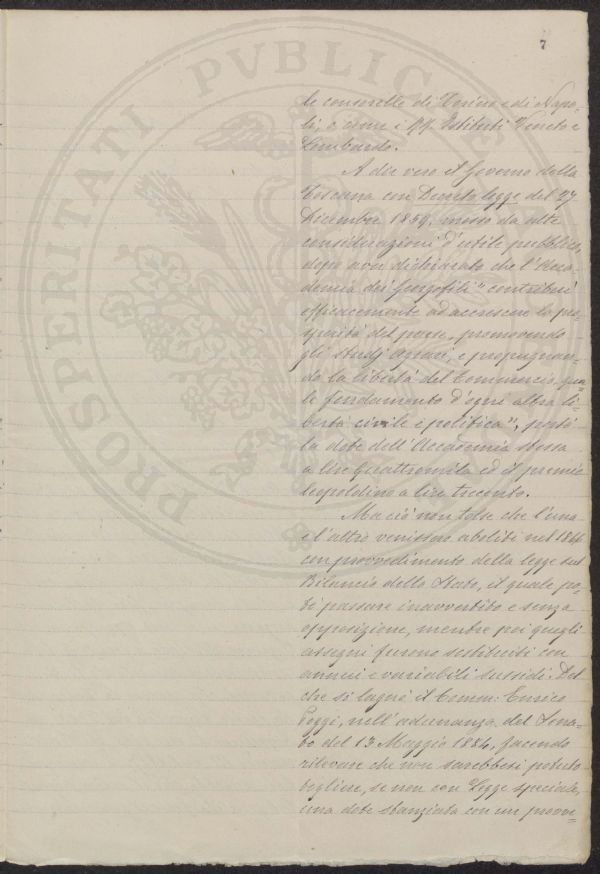 7
le consorelle di Torino e di Napo-
li, e come i RR. Istituti Veneto e
Lombardo.
A dir vero il Governo della
Toscana con Decreto legge del 27
Dicembre 1859, mosso da alte
considerazioni d'utile pubblico,
dopo aver dichiarato che l'Acca-
demia dei Georgofili "contribuì
efficacemente ad accrescere la pro-
sperità del paese, promovendo
gli studj agrarj, e propugnan-
do la libertà del Commercio, qua-
le fondamento d'ogni altra li-
bertà civile e politica", portò
la dote dell'Accademia stessa
a lire Quattromila ed il premio
leopoldino a lire trecento.
Ma ciò non tolse che l'una
e l'altro venissero aboliti nel 1866
con provvedimento della legge sul
Bilancio dello Stato, il quale po-
tè passare inavvertito e senza
opposizione, mentre poi quegli
assegni furono sostituiti con
annui e variabili sussidi. Del
che si lagnò il Comm: Enrico
Poggi, nell'adunanza del Sena-
to del 13 Maggio 1884, facendo
rilevare che non sarebbesi potuto
togliere, se non con Legge speciale,
una dote stanziata con un provve-
PROSPERITATI PVBLICAE